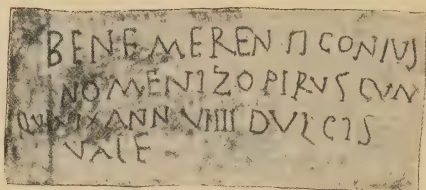 BENEMERENTI CONIVS
NOMENI ZOPIRVS CVN
QVA VIX ANN VIIII DVLCIS
VALE